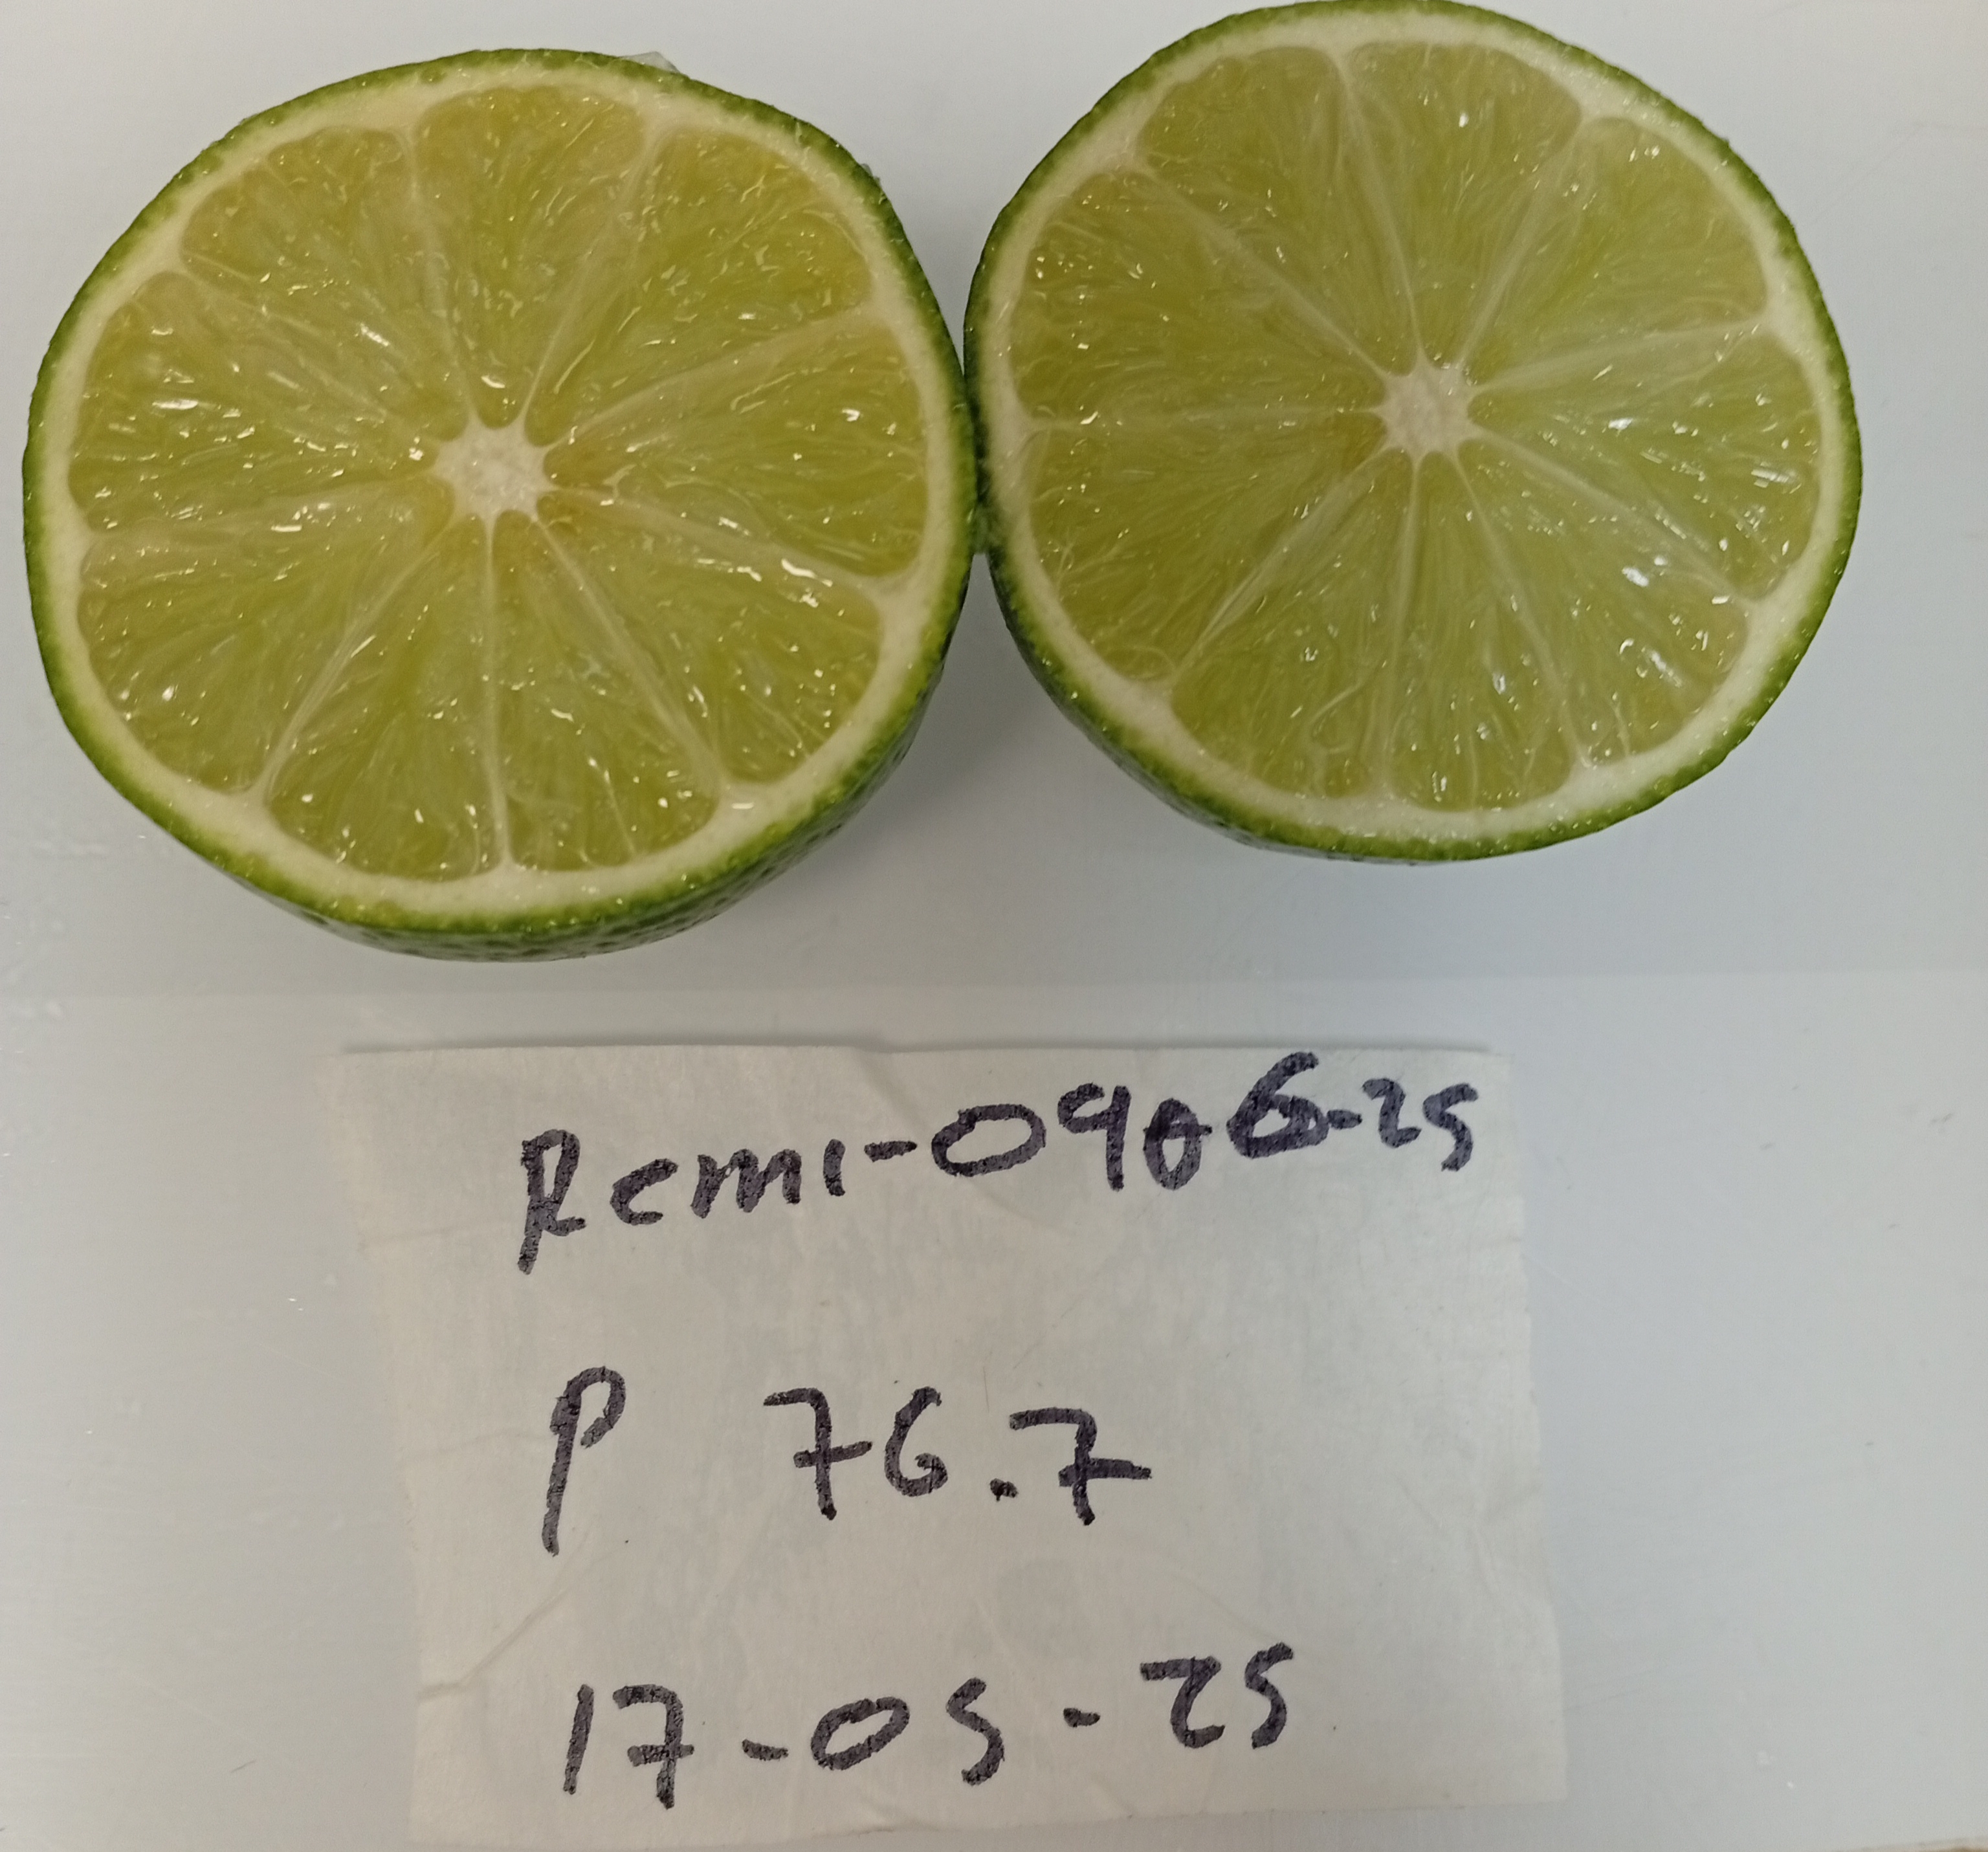 Remi-0906-25
P 76.7
17-05-25